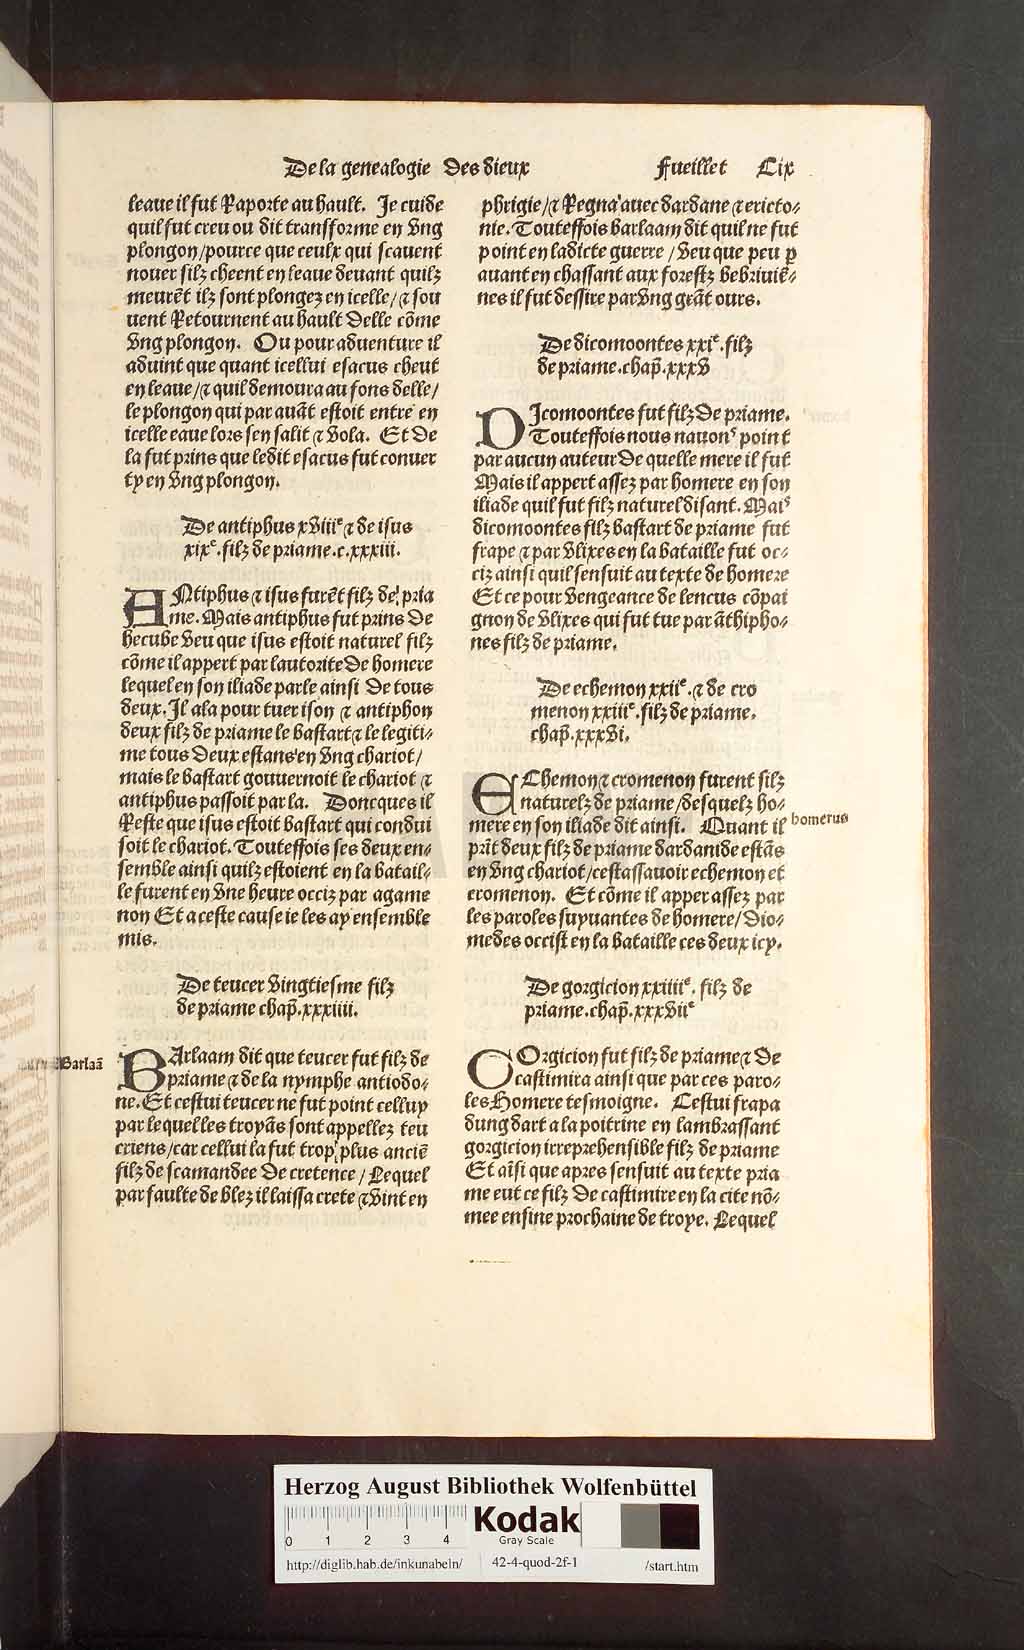 De la genealogie Des dieux Fueillet Lix
leaue il fut Raporte au hault. Je cuide
quil fut creu ou dit transforme en Vng
plongon/pource que ceulx qui scauent
nouer silz cheent en leaue deuant quilz
meurẽt ilz sont plongez en icelle/⁊ sou
uent Retournent au hault Delle cõme
Vng plongon. Ou pour aduenture il
aduint que quant icellui esacus cheut
en leaue/⁊ quil demoura au fons delle/
le plongon qui par auãt estoit entre en
icelle eaue lors sen salit ⁊ Vola. Et De
la fut prins que ledit esacus fut conuer
ty en Vng plongon.
De antiphus xViiie ⁊ de isus
xixe. filz de priame.c.xxxiii.
ANtiphus ⁊ isus furẽt filz de pria
me. Mais antiphus fut prins De
hecube Veu que isus estoit naturel filz
cõme il appert par lautorite De homere
lequel en son iliade parle ainsi De tous
deux. Il ala pour tuer ison ⁊ antiphon
deux filz de priame le bastart ⁊ le legiti-
me tous Deux estans en Vng chariot/
mais le bastart gouuernoit le chariot ⁊
antiphus passoit par la. Doncques il
Reste que isus estoit bastart qui condui
soit le chariot. Touteffois ses deux en-
semble ainsi quilz estoient en la batail-
le furent en Vne heure occiz par agame
non Et a ceste cause ie les ay ensemble
mis.
De teucer Vingtiesme filz
de priame chap̃.xxxiiii.
Barlaã
BArlaam dit que teucer fut filz de
priame ⁊ de la nymphe antiodo-
ne. Et cestui teucer ne fut point celluy
par lequel les troyãs sont appellez teu
criens/car cellui la fut trop plus anciẽ
filz de scamandee De cretence/Lequel
par faulte de blez il laissa crete ⁊ Vint en
phrigie/⁊ Regna auec dardane ⁊ ericto-
nie. Touteffois barlaam dit quil ne fut
point en ladicte guerre/Veu que peu ꝑ
auant en chassant aux forestz bebriuiẽ-
nes il fut dessire par Vng grãt ours.
De dicomoontes xxie. filz
de priame.chap̃.xxxV
DIcomoontes fut filz De priame.
Touteffois nous nauons point
par aucun auteur De quelle mere il fut
Mais il appert assez par homere en son
iliade quil fut filz naturel disant. Mais
dicomoontes filz bastart de priame fut
frape ⁊ par Vlixes en la bataille fut oc-
ciz ainsi quil sensuit au texte de homere
Et ce pour Vengeance de lencus cõpai
gnon de Vlixes qui fut tue par ãthipho-
nes filz de priame.
De echemon xxiie. ⁊ de cro
menon xxiiie. filz de priame.
chap̃.xxxVi.
EChemon ⁊ cromenon furent filz
naturelz de priame/desquelz ho-
mere en son iliade dit ainsi. Quant il
homerus
prĩt deux filz de priame dardanide estãs
en Vng chariot/cestassauoir echemon et
cromenon. Et cõme il apper assez par
les paroles suyuantes de homere/Dio-
medes occist en la bataille ces deux icy.
De gorgicion xxiiiie. filz de
priame.chap̃.xxxViie
GOrgicion fut filz de priame ⁊ De
castimira ainsi que par ces paro-
les Homere tesmoigne. Cestui frapa
dung dart a la poitrine en lambrassant
gorgicion irreprehensible filz de priame
Et aĩsi que apres sensuit au texte pria
me eut ce filz De castimire en la cite nõ-
mee ensine prochaine de troye. Lequel
Herzog August Bibliothek Wolfenbüttel
0 1 2 3 4
Kodak
Gray Scale
http://diglib.hab.de/inkunabeln/ 42-4-quod-2f-1 /start.htm